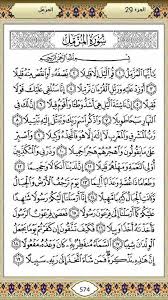 الجزء 29
المزمل
سُورَةُ المُزَّمِّل
بِسْمِ ٱللَّهِ ٱلرَّحْمَٰنِ ٱلرَّحِيمِ
يَٰٓأَيُّهَا ٱلْمُزَّمِّلُ ١ قُمِ ٱلَّيْلَ إِلَّا قَلِيلًا ٢ نِّصْفَهُۥٓ أَوِ ٱنقُصْ مِنْهُ قَلِيلًا ٣
أَوْ زِدْ عَلَيْهِ وَرَتِّلِ ٱلْقُرْءَانَ تَرْتِيلًا ٤ إِنَّا سَنُلْقِى عَلَيْكَ قَوْلًا ثَقِيلًا ٥
إِنَّ نَاشِئَةَ ٱلَّيْلِ هِىَ أَشَدُّ وَطْـًٔا وَأَقْوَمُ قِيلًا ٦ إِنَّ لَكَ فِى ٱلنَّهَارِ سَبْحًا
طَوِيلًا ٧ وَٱذْكُرِ ٱسْمَ رَبِّكَ وَتَبَتَّلْ إِلَيْهِ تَبْتِيلًا ٨ رَّبُّ ٱلْمَشْرِقِ
وَٱلْمَغْرِبِ لَآ إِلَٰهَ إِلَّا هُوَ فَٱتَّخِذْهُ وَكِيلًا ٩ وَٱصْبِرْ عَلَىٰ مَا يَقُولُونَ
وَٱهْجُرْهُمْ هَجْرًا جَمِيلًا ١٠ وَذَرْنِى وَٱلْمُكَذِّبِينَ أُو۟لِى ٱلنَّعْمَةِ وَمَهِّلْهُمْ
قَلِيلًا ١١ إِنَّ لَدَيْنَآ أَنكَالًا وَجَحِيمًا ١٢ وَطَعَامًا ذَا غُصَّةٍ
وَعَذَابًا أَلِيمًا ١٣ يَوْمَ تَرْجُفُ ٱلْأَرْضُ وَٱلْجِبَالُ وَكَانَتِ ٱلْجِبَالُ
كَثِيبًا مَّهِيلًا ١٤ إِنَّآ أَرْسَلْنَآ إِلَيْكُمْ رَسُولًا شَٰهِدًا عَلَيْكُمْ كَمَآ
أَرْسَلْنَآ إِلَىٰ فِرْعَوْنَ رَسُولًا ١٥ فَعَصَىٰ فِرْعَوْنُ ٱلرَّسُولَ
فَأَخَذْنَٰهُ أَخْذًا وَبِيلًا ١٦ فَكَيْفَ تَتَّقُونَ إِن كَفَرْتُمْ يَوْمًا يَجْعَلُ
ٱلْوِلْدَٰنَ شِيبًا ١٧ ٱلسَّمَآءُ مُنفَطِرٌۢ بِهِۦ كَانَ وَعْدُهُۥ مَفْعُولًا ١٨
إِنَّ هَٰذِهِۦ تَذْكِرَةٌ فَمَن شَآءَ ٱتَّخَذَ إِلَىٰ رَبِّهِۦ سَبِيلًا ١٩
574